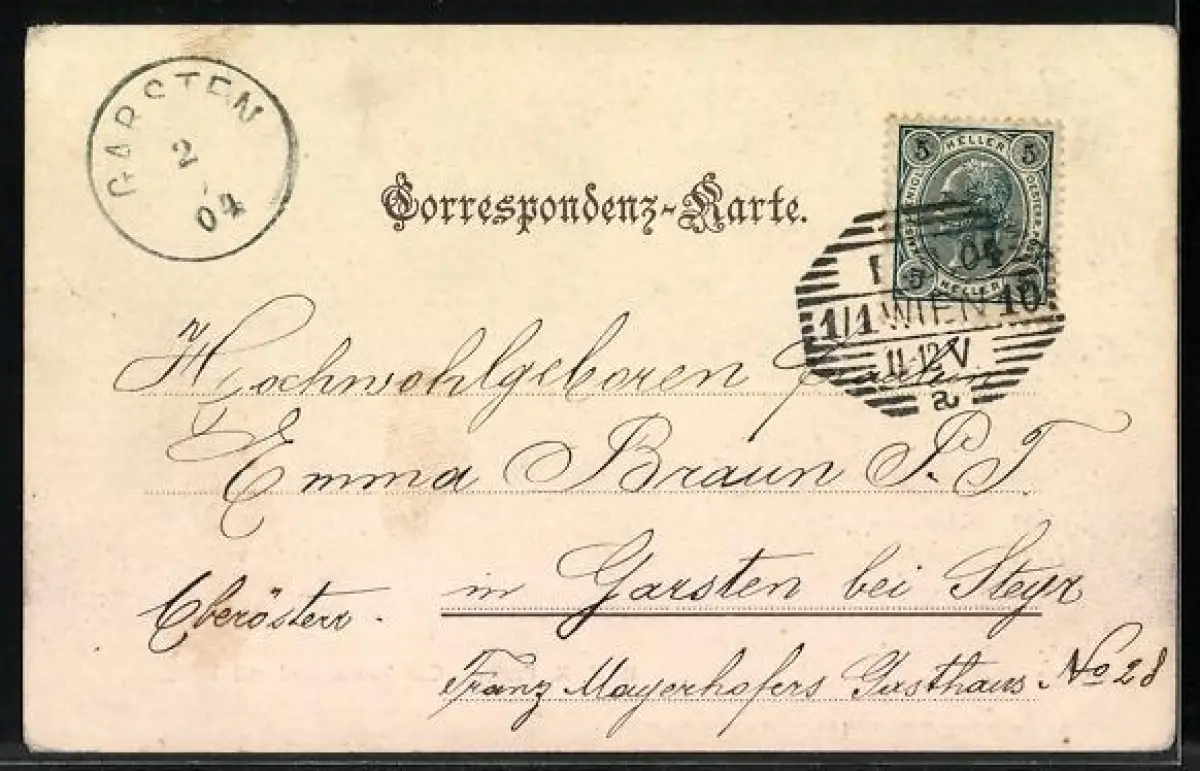 GARSTEN
2
04
Correspondenz-Karte.
5 HELLER 5
5 HELLER 5
04
1/1 WIEN 10
11-12V
a
Hochwohlgeboren
Emma Braun P. T.
in Garsten bei Steyr
Oberösterr.
Franz Mayerhofers Gasthaus No 28